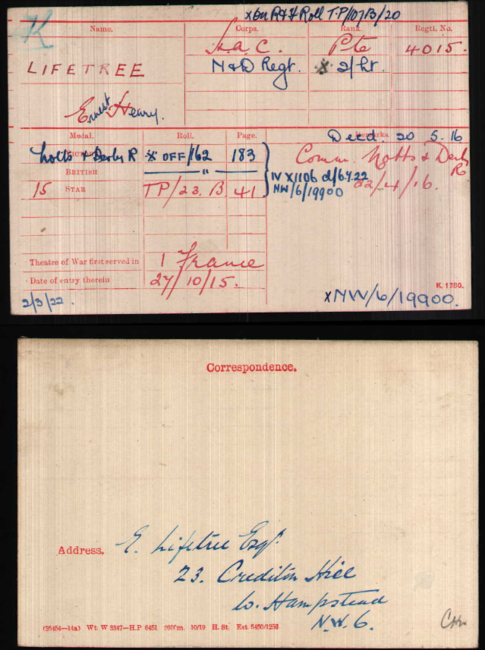 K
x On R & F Roll TP/107B/20
Name. Corps. Rank. Regtl. No.
LIFETREE H.A.C. Pte 4015.
Ernest Henry. N & D Regt. x 2/Lt.
Medal. Roll. Page. Remarks
Decd. 20 5. 16
Notts & Derby R x OFF/162 183
Comm. Notts & Derby R
BRITISH — " — "
22/4/16.
IV X/1106 d/6.4.22
NW/6/19900
15 STAR TP/23. B 41
Theatre of War first served in 1 France
Date of entry therein 27/10/15.
K. 1380.
2/3/22. xNW/6/19900.
Correspondence.
Address. E. Lifetree Esqr.
23. Crediton Hill
W. Hampstead
N.W. 6.
H. St.